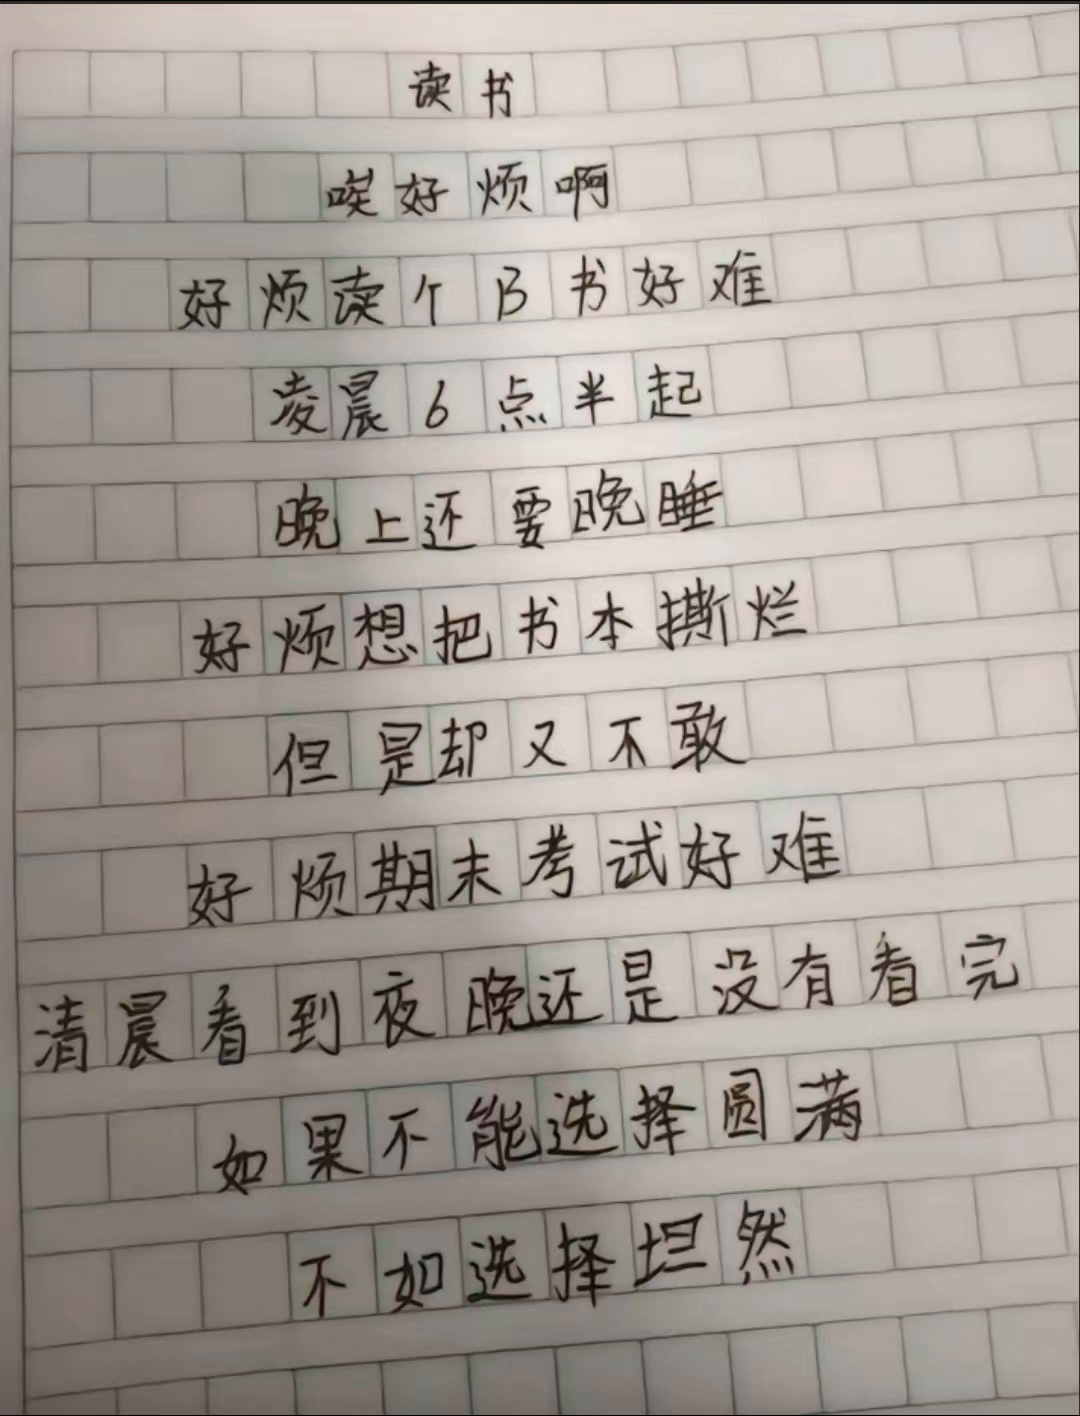 读书
唉好烦啊
好烦读个B书好难
凌晨6点半起
晚上还要晚睡
好烦想把书本撕烂
但是却又不敢
好烦期末考试好难
清晨看到夜晚还是没有看完
如果不能选择圆满
不如选择坦然